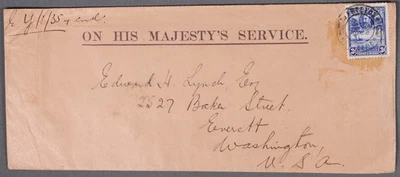 Y/1/35 & encl.
ON HIS MAJESTY'S SERVICE.
Edward H. Lynch, Esq
2527 Baker Street,
Everett
Washington,
U. S. A.